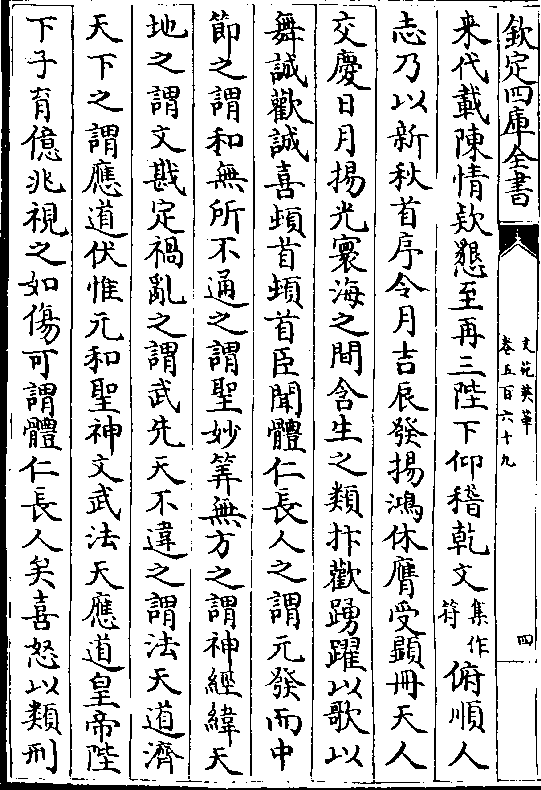 欽定四庫全書
文苑英華
卷五百六十九
四
来代載陳情欵懇至再三陛下仰稽乾文集作符俯順人
志乃以新秋首序令月吉辰發揚鴻休膺受顯冊天人
交慶日月揚光寰海之間含生之類抃歡踴躍以歌以
舞誠歡誠喜頓首頓首臣聞體仁長人之謂元發而中
節之謂和無所不通之謂聖妙筭無方之謂神經緯天
地之謂文戡定禍亂之謂武先天不違之謂法天道濟
天下之謂應道伏惟元和聖神文武法天應道皇帝陛
下子育億兆視之如傷可謂體仁長人矣喜怒以類刑